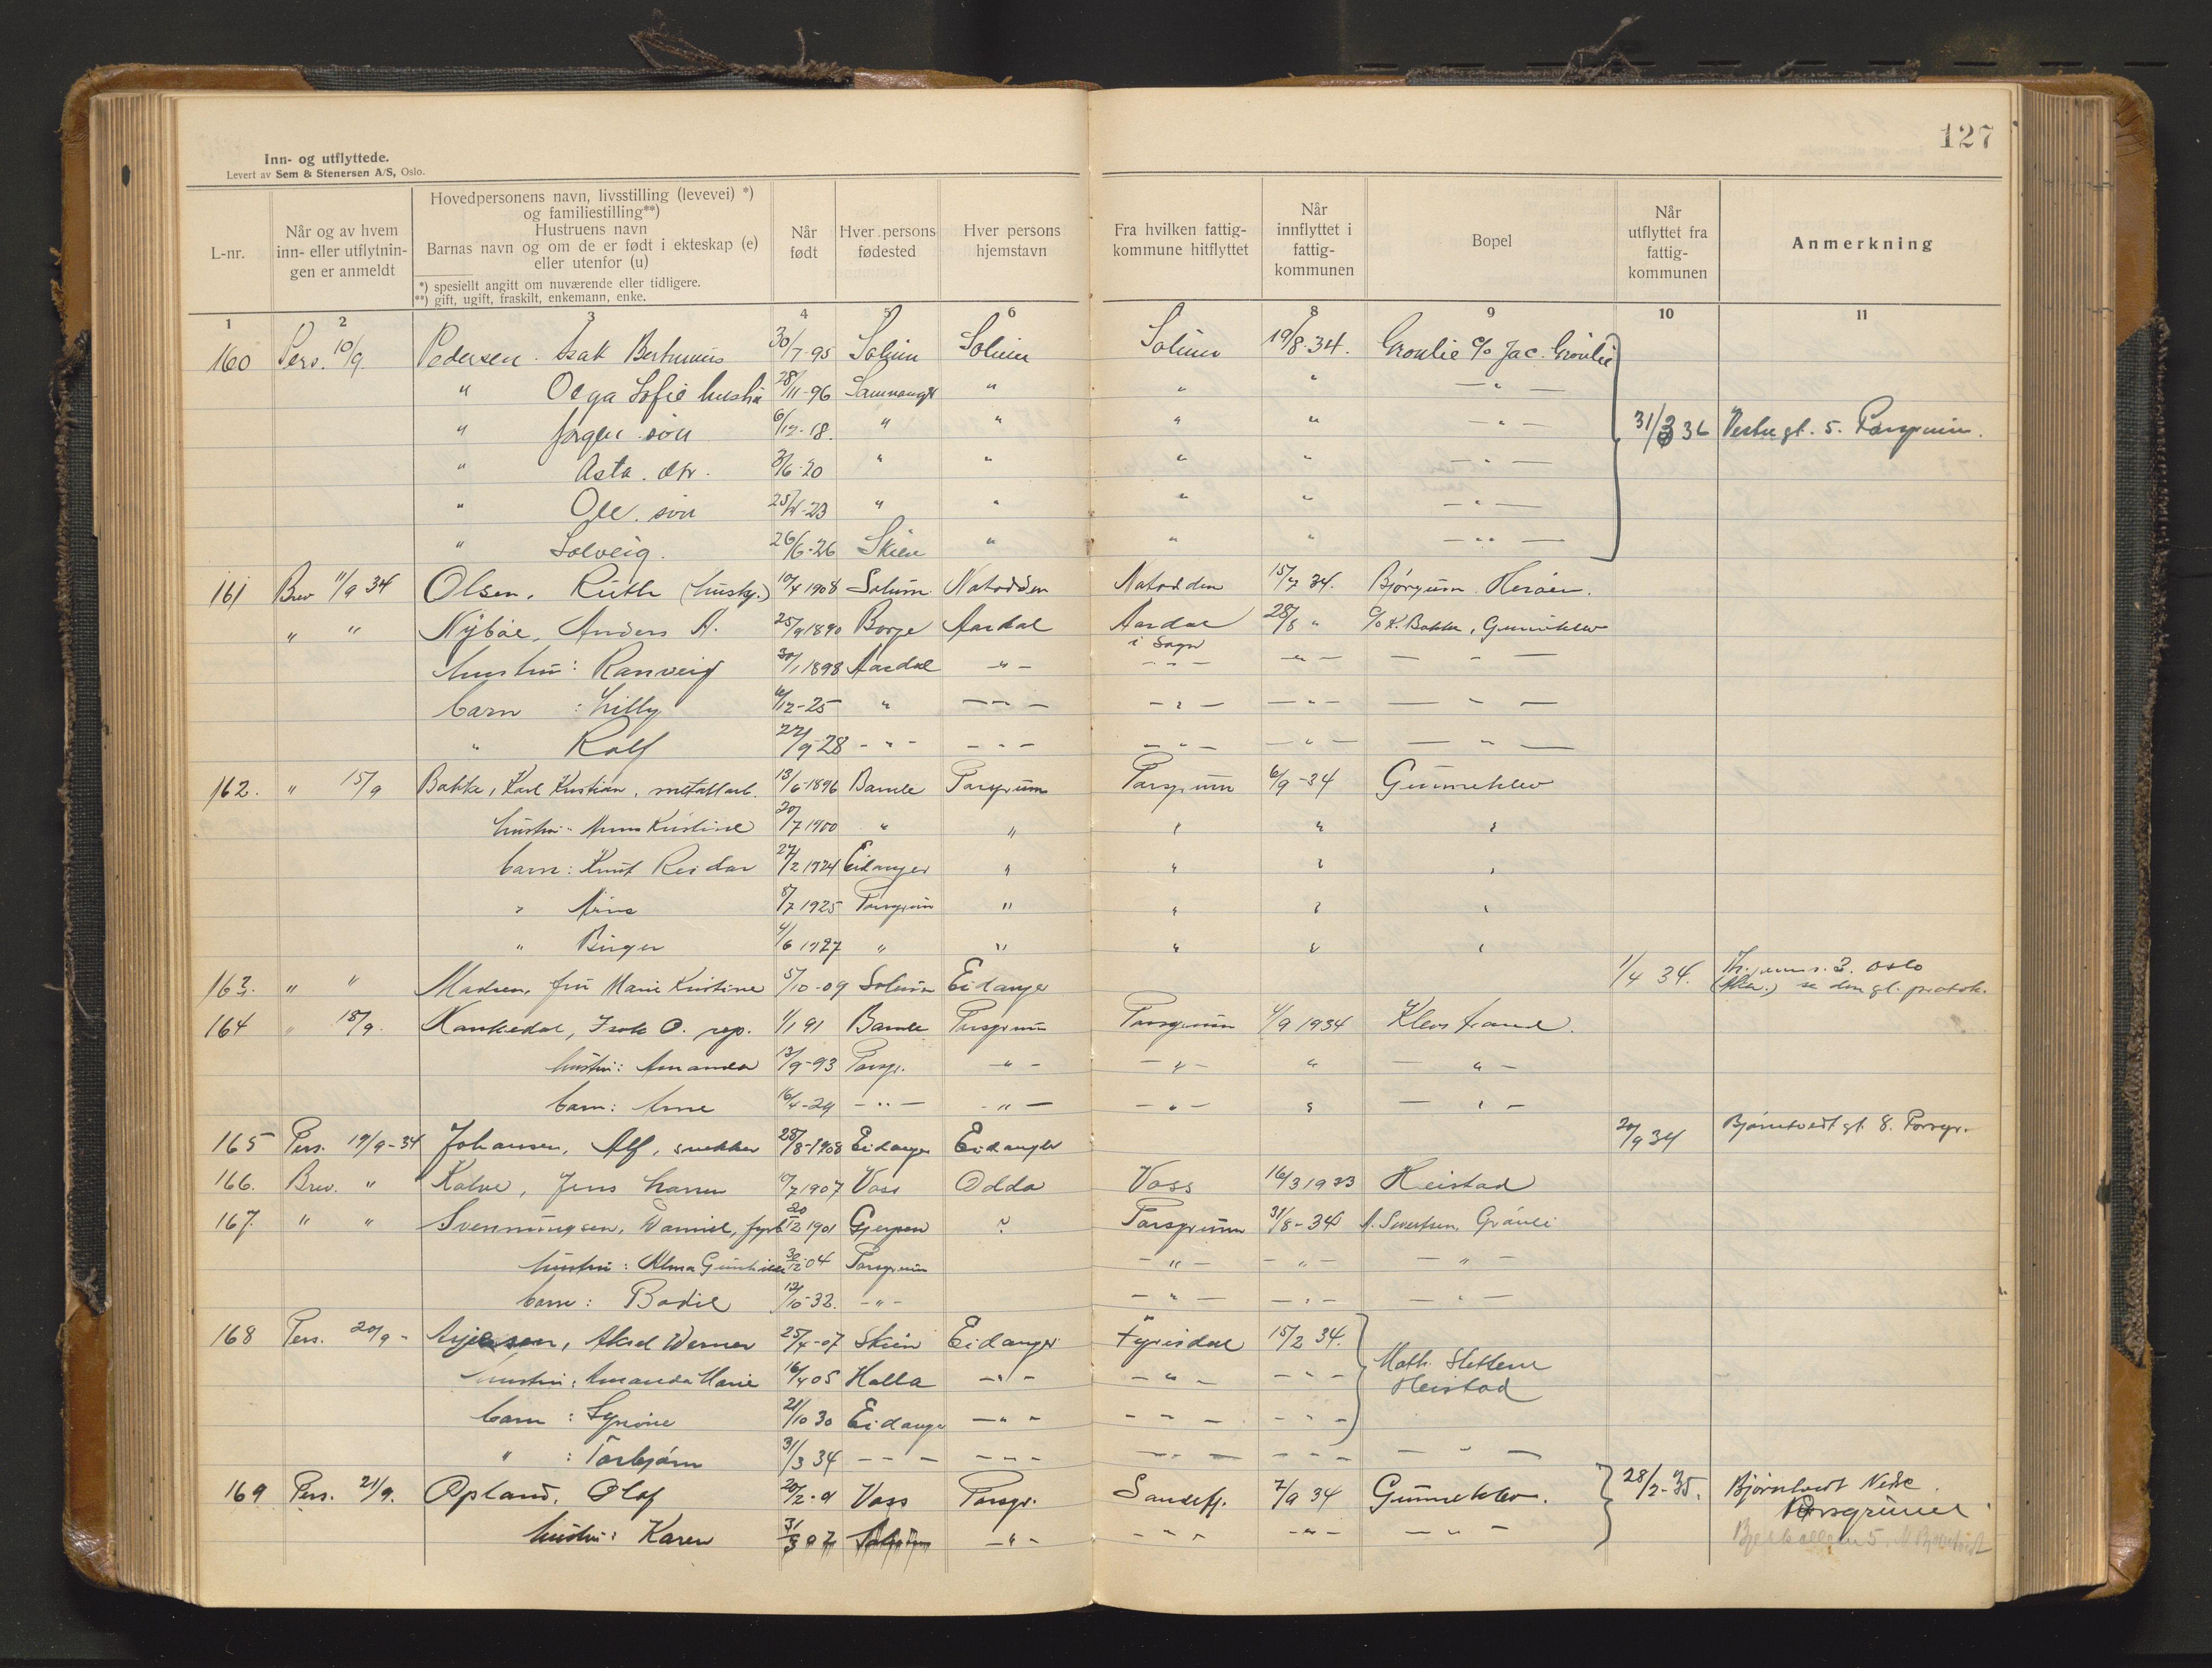 127
Inn- og utflyttede.
Levert av Sem & Stenersen A/S, Oslo.
L-nr.
Når og av hvem inn- eller utflytnin- gen er anmeldt
Hovedpersonens navn, livsstilling (levevei) *)
og familiestilling**)
Hustruens navn
Barnas navn og om de er født i ekteskap (e)
eller utenfor (u)
*) spesiellt angitt om nuværende eller tidligere.
**) gift, ugift, fraskilt, enkemann, enke.
Når født
Hver persons fødested
Hver persons hjemstavn
Fra hvilken fattig- kommune hitflyttet
Når innflyttet i fattig- kommunen
Bopel
Når utflyttet fra fattig- kommunen
Anmerkning
1 2 3 4 5 6 8 9 10 11
160 Pers. 10/9. Pedersen. Isak 30/7-95 Solum Solum Solum 19/8-34. Grønlie c/o Jac. Grønlie
" Olga Sofie hustru 28/11-96 " " " — " —
" Jørgen søn 6/12-18. " " " " — " — 31/3 36 Vestregt. 5. Porsgrunn.
" Asta. dtr. -20 " " " " — " —
" Ole. søn -23 " " " " — " —
" Solveig. 26/6-26 Skien " " " — " —
161 Brev 11/9 34 Olsen, Ruth (hushj.) 10/4 1908 Solum Notodden Notodden 15/7 34. Bjørgum Herøen.
" " Nybøe, Anders A. 25/9 1890 Borge Aardal Aardal i Sogn 28/8 " c/o K. Bakke, Gunneklev
hustru: Ranveig 30/1 1898 Aardal — " — — " — — " — — " —
barn : Lilly 6/12-25 " — " — — " — — " — — " —
" Rolf 22/9-28 — " — — " — — " — — " — — " —
162. " 15/9 Bakke, Karl Kristian, metallarb. 13/6-1896 Bamle Porsgrunn Porsgrunn 6/9-34 Gunneklev
hustru: Anna Kristine 20/7 1900 " " " " "
barn: Knut Reidar 27/2 1924 Eidanger " " " "
" Arne 8/7 1925 Porsgrunn " " " "
" Birger 4/6 1927 " " " " "
163. " " Madsen, fru Marie Kristine 5/10-09 Solum Eidanger 1/4 34. Oslo
se den gl. protok.
164 " 18/9. Kankedal, Isak O. rep. 1/1 91 Bamle Porsgrunn Porsgrunn 4/9 1934 Klevstrand.
hustru: Amanda 13/9-93 Porsgr. — " — — " — " — " —
barn: Arne 16/4-29 — " — — " — — " — " — " —
165 Pers. 19/9-34 Johansen, Alf, snekker 28/8-1908 Eidanger Eidanger 20/9 34 Bjørntvedtgt. 8. Porsgr.
166. Brev. " Kolve, Jens 10/7 1907 Voss Odda Voss 16/3 1933 Heistad
167. " " Svenningsen, Daniel, fyrb. 20/12 1901 Gjerpen ? Porsgrunn 31/8-34 A. Sivertsen, Grønli
hustru: Alma Gunhilde 30/12-04 Porsgrunn — " — — " — — " —
barn: Bodil 12/10-32. — " — — " — — " — — " —
168 Pers. 20/9 - Aksel Werner 25/4-07 Skien Eidanger Fyrisdal 15/2 34. Math. Slettene
Heistad
hustru: Amanda Marie 16/4 05 Holla — " — — " — — " —
barn : Synnøve 21/10 30 Eidanger — " — — " — — " —
" : Torbjørn 31/3 34 — " — — " — — " — — " — — " —
169 Pers. 21/9. Opland, Olaf Voss Porsgr. Sandefj. 7/9 34 Gunneklev. 28/2-35. Bjørntvedt Nedre
Porsgrunn
hustru: Karen 31/3 07 — " — — " — — " — — " —